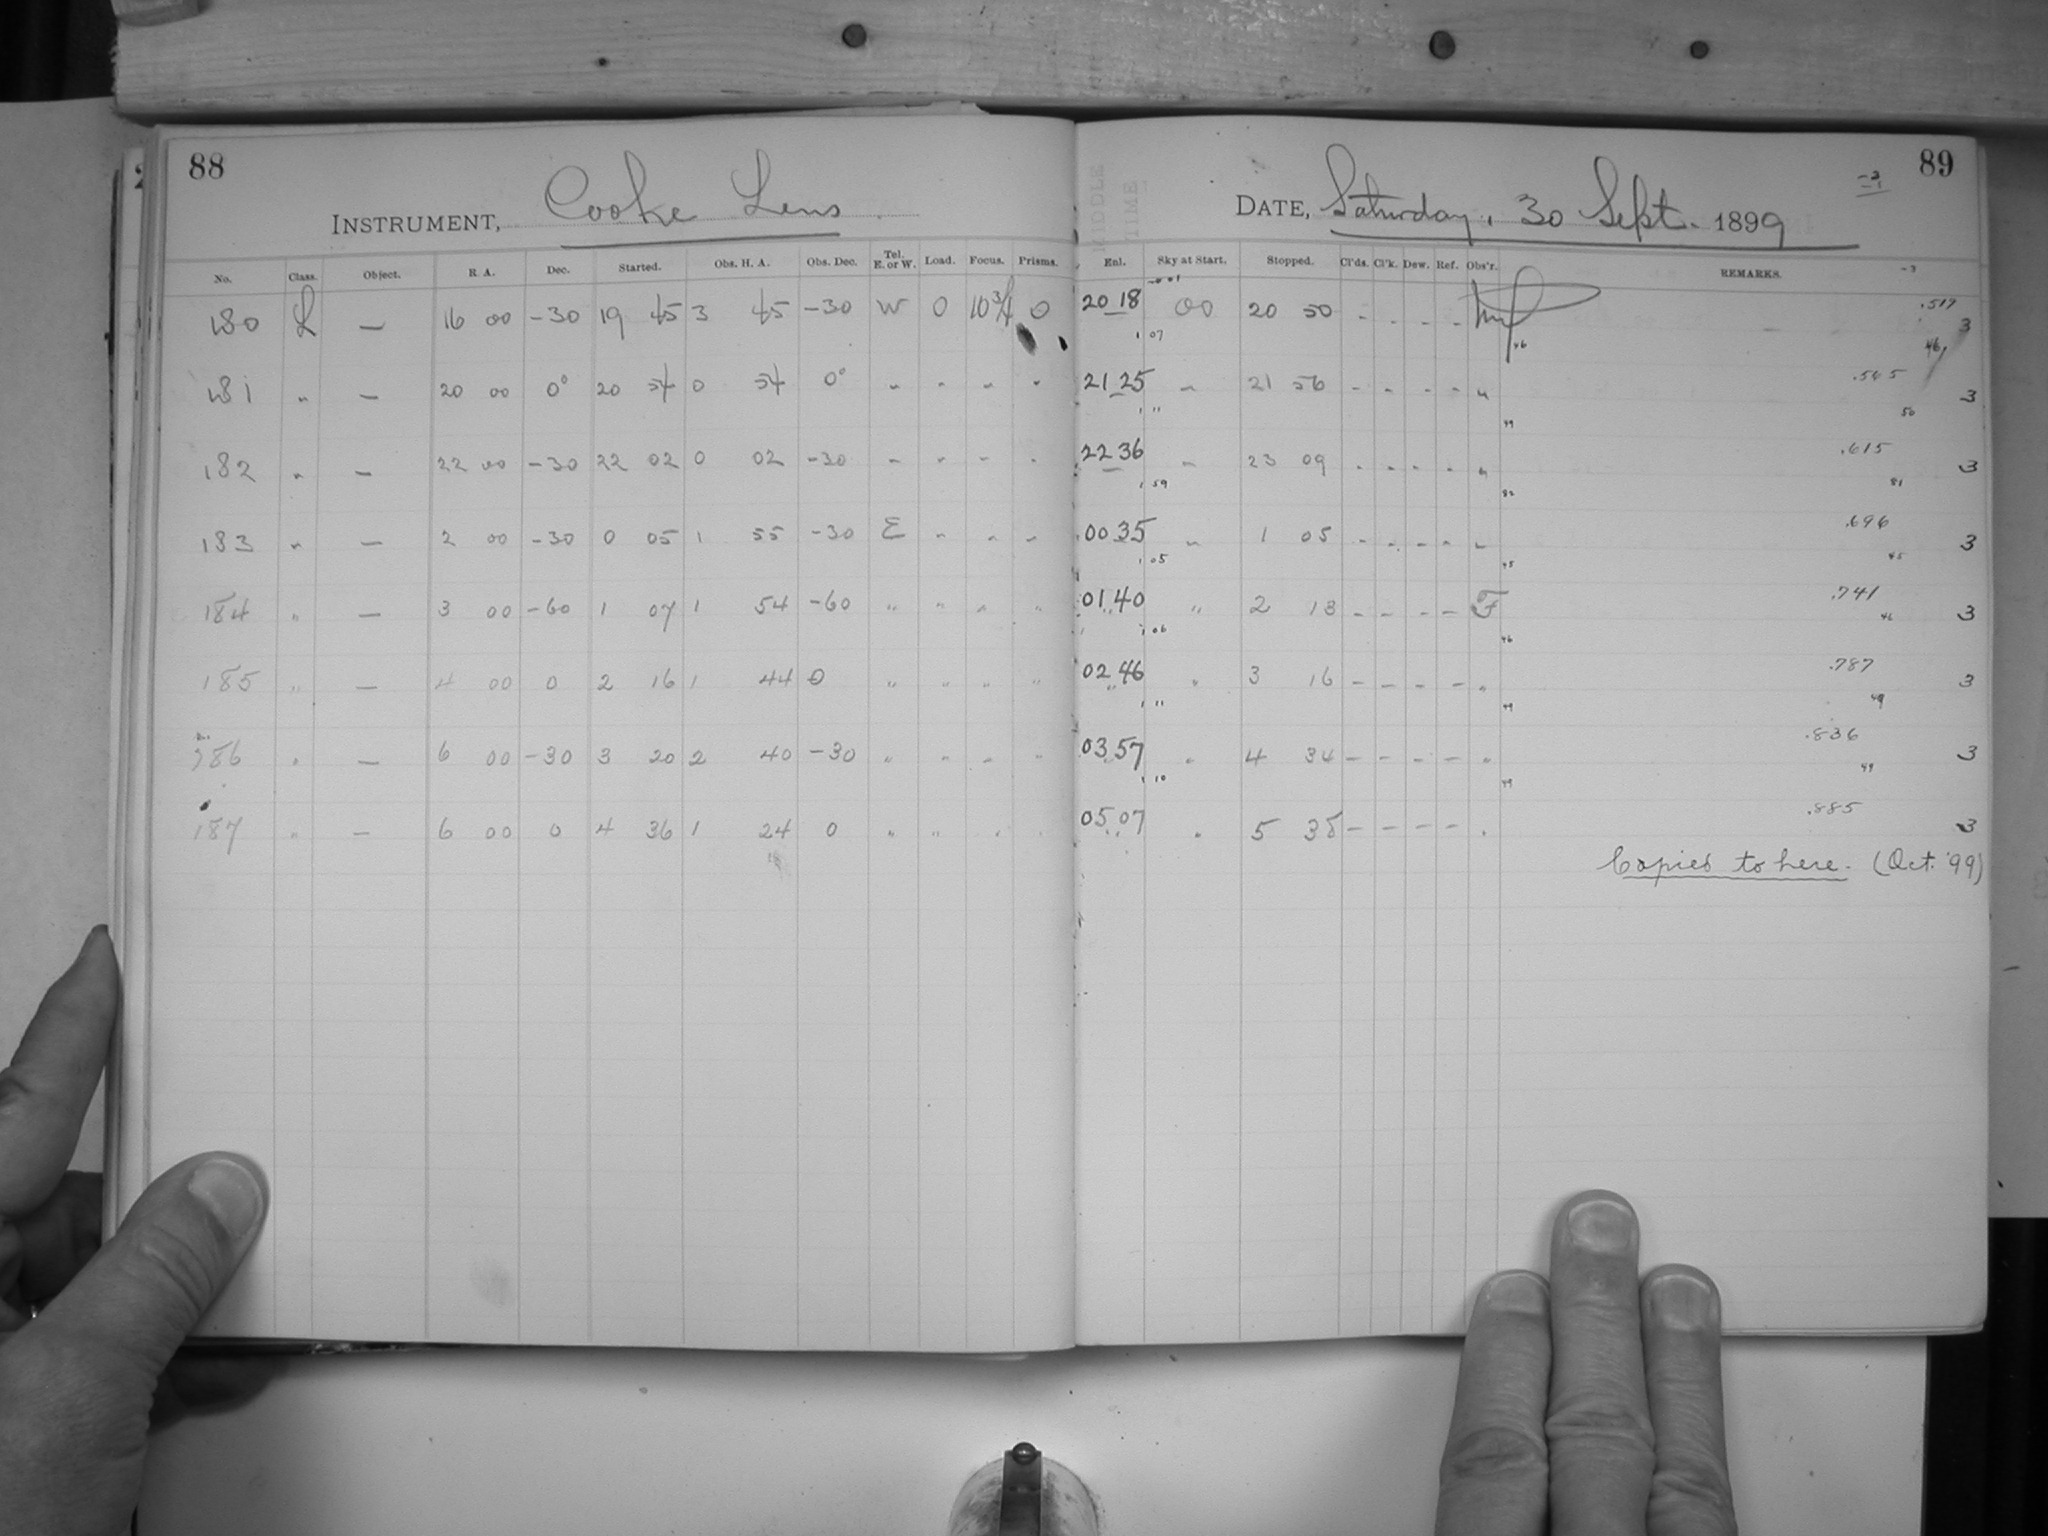 88
INSTRUMENT, Cooke Lens
No. Class. Object. R. A. Dec. Started. Obs. H. A. Obs. Dec. Tel. E. or W. Load. Focus. Prisms.
180 L — 16 00 -30 19 45 3 45 -30 W 0 10 3/4 0
181 " — 20 00 0° 20 54 0 54 0° " " " "
182 " — 22 00 -30 22 02 0 02 -30 " " " "
183 " — 2 00 -30 0 05 1 55 -30 E " " "
184 " — 3 00 -60 1 07 1 54 -60 " " " "
185 " — 4 00 0 2 16 1 44 0 " " " "
186 " — 6 00 -30 3 20 2 40 -30 " " " "
187 " — 6 00 0 4 36 1 24 0 " " " "
89
MIDDLE
TIME
DATE, Saturday, 30 Sept. 1899
Enl. Sky at Start. Stopped. Cl'ds. Cl'k. Dew. Ref. Obs'r. REMARKS. -3
20 18 00 20 50 - - - - .517 3
1 07 46 46
21 25 " 21 56 - - - - " .545 3
1 11 49 50
22 36 " 23 09 - - - - " .615 3
1 59 82 81
00 35 " 1 05 - - - - " .696 3
1 05 45 45
01 40 " 2 13 - - - - F .741 3
1 06 46 46
02 46 " 3 16 - - - - " .787 3
1 11 49 49
03 57 " 4 34 - - - - " .836 3
1 10 49 49
05 07 " 5 38 - - - - " .885 3
Copied to here. (Oct. '99)